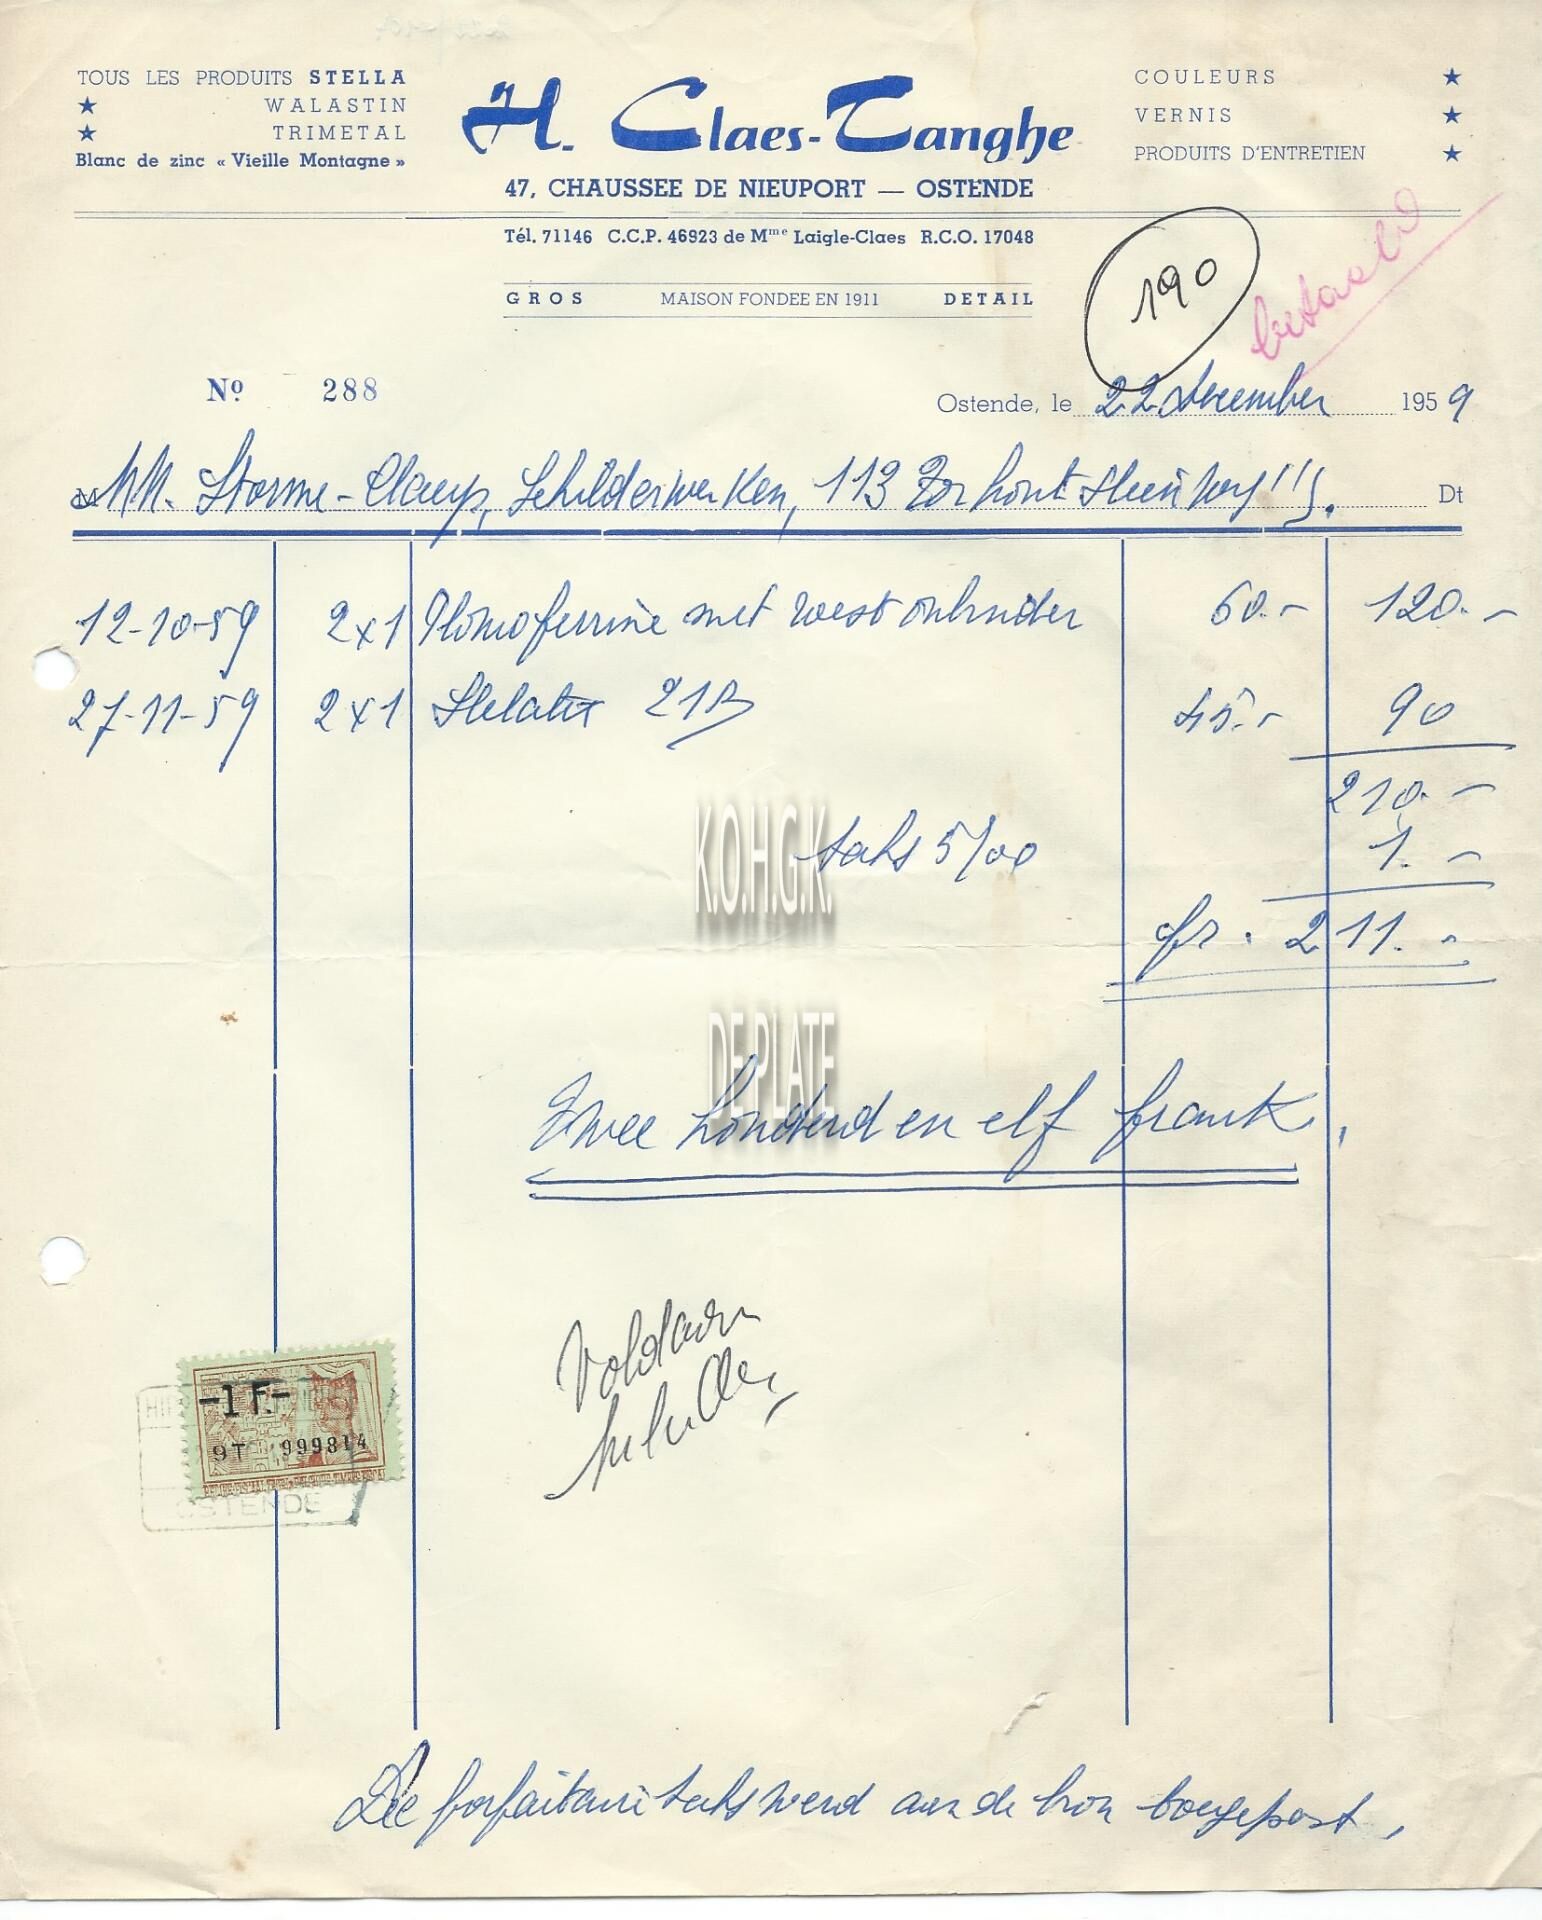 TOUS LES PRODUITS STELLA
★ WALASTIN
★ TRIMETAL
Blanc de zinc « Vieille Montagne »
H. Claes-Tanghe
47, CHAUSSEE DE NIEUPORT — OSTENDE
COULEURS ★
VERNIS ★
PRODUITS D'ENTRETIEN ★
Tél. 71146 C.C.P. 46923 de Mme Laigle-Claes R.C.O. 17048
GROS MAISON FONDEE EN 1911 DETAIL
190
betaald
Nº 288
Ostende, le 22 december 1959
MM. Storme-Claeys, Schilderwerken, 113 Torhoutsteenweg Dt
12-10-59 2x1 met 60.- 120.-
27-11-59 2x1 Stelatex 21B 45.- 90
210.-
taks 5/00 1.-
fr. 211.-
K.O.H.G.K.
DE PLATE
Twee honderd en elf frank.
Voldaan
-1 F.-
9T 999814
OSTENDE
De forfaitaire taks werd aan de bron toegepast.